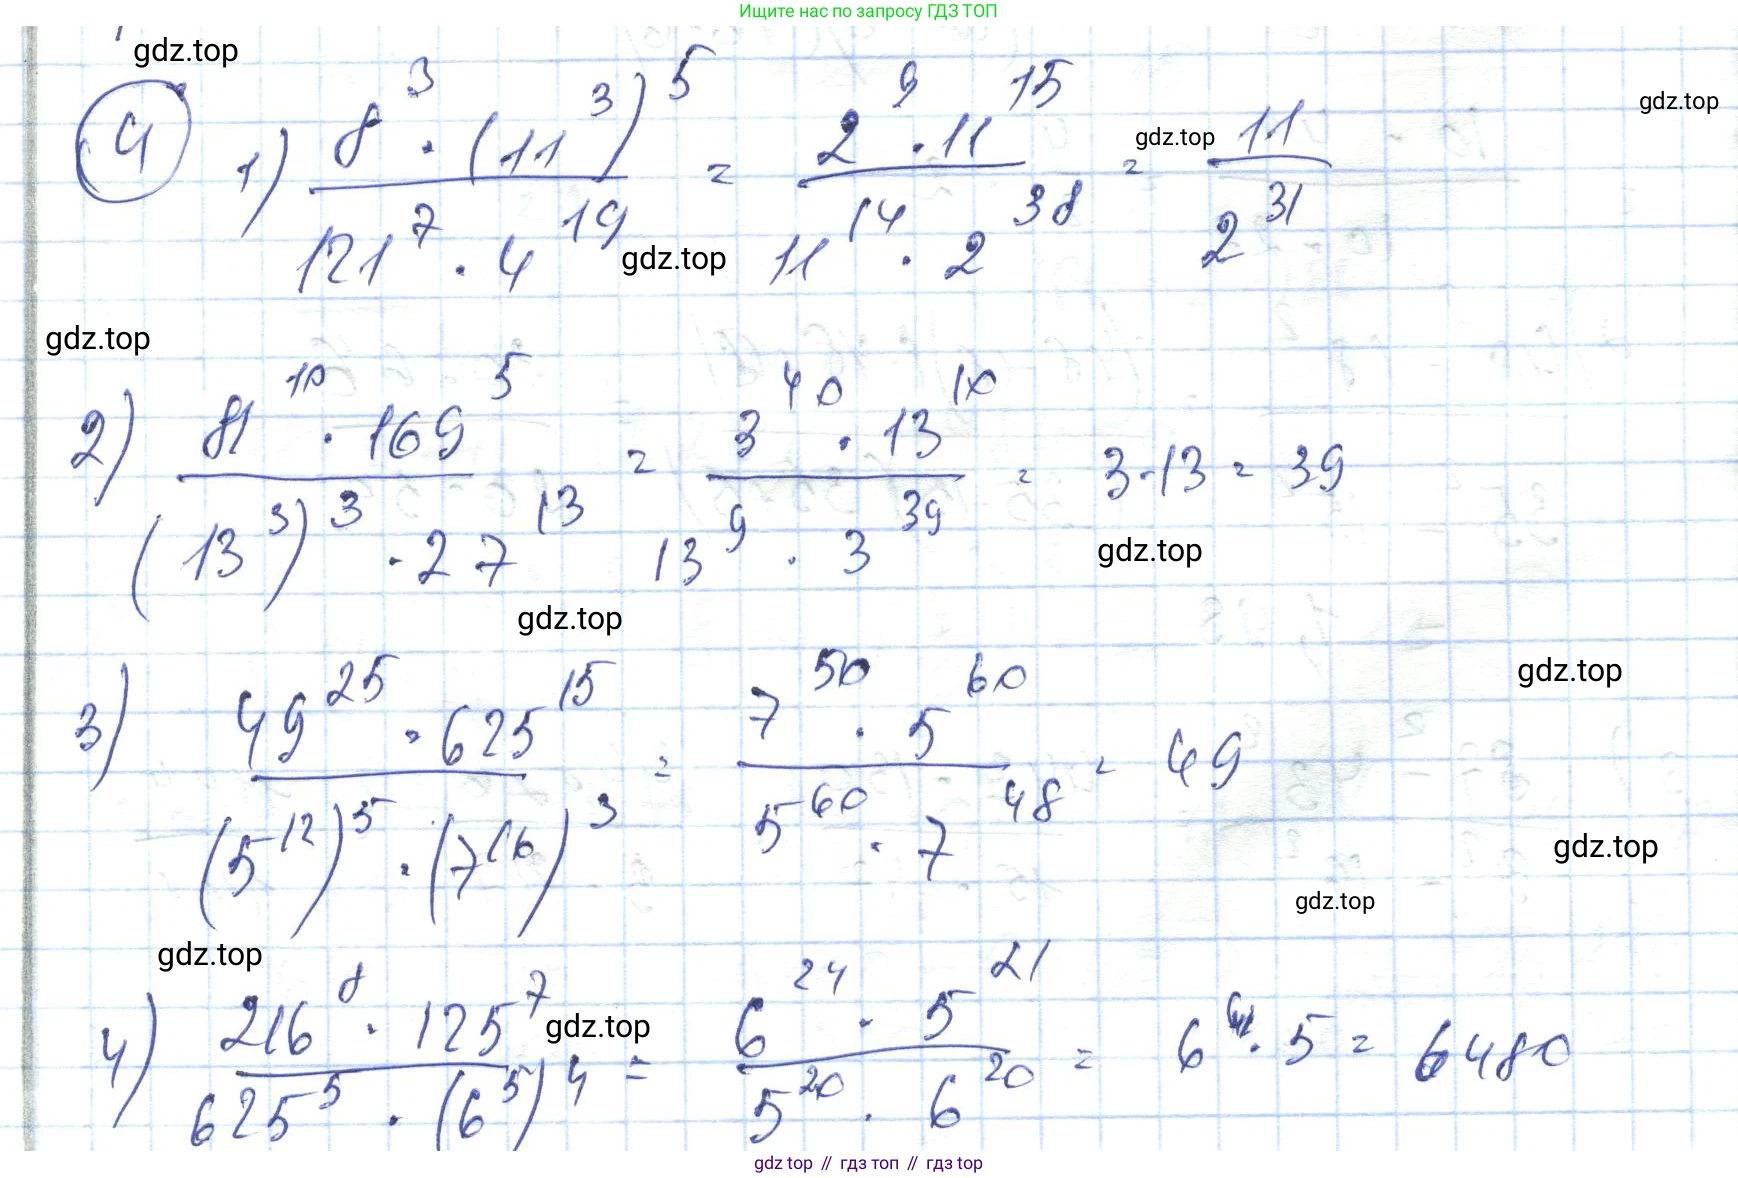 Ищите нас по запросу ГДЗ ТОП
gdz.top
gdz.top
4 1) 8^3 · (11^3)^5 / 121^7 · 4^19 = 2^9 · 11^15 / 11^14 · 2^38 = 11 / 2^31
gdz.top
gdz.top
gdz.top
2) 81^10 · 169^5 / (13^3)^3 · 27^13 = 3^40 · 13^10 / 13^9 · 3^39 = 3·13 = 39
gdz.top
gdz.top
gdz.top
3) 49^25 · 625^15 / (5^12)^5 · (7^16)^3 = 7^50 · 5^60 / 5^60 · 7^48 = 49
gdz.top
gdz.top
gdz.top
4) 216^8 · 125^7 / 625^5 · (6^5)^4 = 6^24 · 5^21 / 5^20 · 6^20 = 6^4 · 5 = 6480
gdz.top
gdz top // гдз топ // гдз top